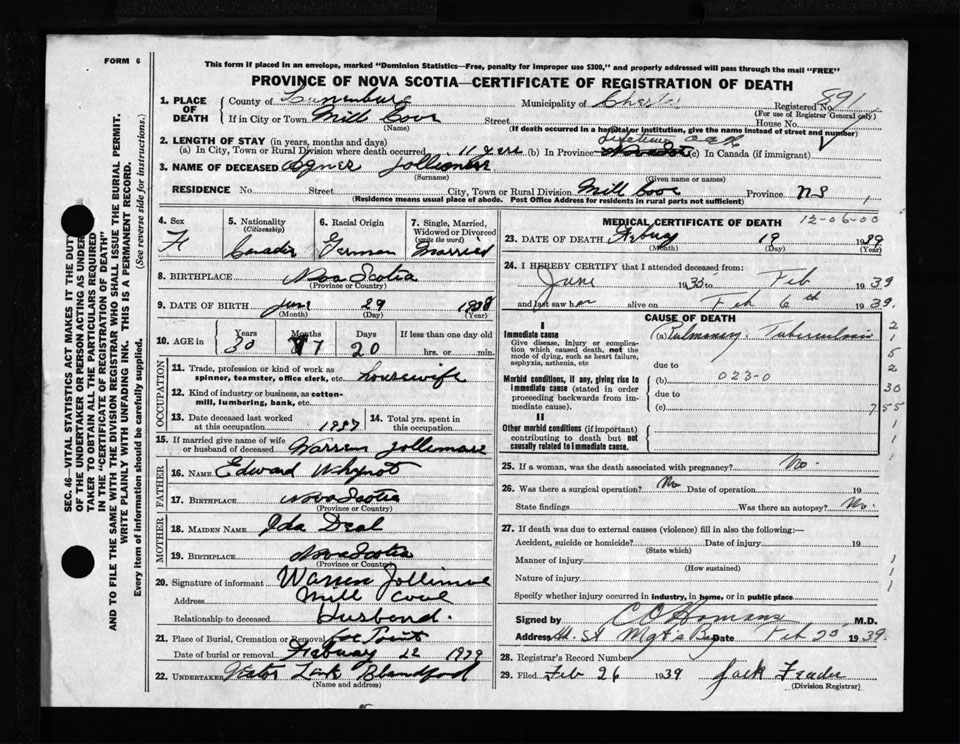 FORM 6
This form if placed in an envelope, marked "Dominion Statistics—Free, penalty for improper use $300," and properly addressed will pass through the mail "FREE"
PROVINCE OF NOVA SCOTIA—CERTIFICATE OF REGISTRATION OF DEATH
1. PLACE OF DEATH
County of Lunenburg Municipality of Chester Registered No. 891
(For use of Registrar General only)
If in City or Town Mill Cove Street House No.
(Name) (If death occurred in a hospital or institution, give the name instead of street and number)
2. LENGTH OF STAY (in years, months and days)
(a) In City, Town or Rural Division where death occurred 11 yrs (b) In Province lifetime (c) In Canada (if immigrant)
3. NAME OF DECEASED Agnes Jollimore
(Surname) (Given name or names)
RESIDENCE No. Street City, Town or Rural Division Mill Cove Province NS
(Residence means usual place of abode. Post Office Address for residents in rural parts not sufficient)
4. Sex F
5. Nationality (Citizenship)
6. Racial Origin German
7. Single, Married, Widowed or Divorced (write the word) Married
8. BIRTHPLACE Nova Scotia
(Province or Country)
9. DATE OF BIRTH June 29 1908
(Month) (Day) (Year)
10. AGE in Years Months Days If less than one day old
30 7 20 hrs. or min.
OCCUPATION
11. Trade, profession or kind of work as spinner, teamster, office clerk, etc. housewife
12. Kind of industry or business, as cotton-mill, lumbering, bank, etc.
13. Date deceased last worked at this occupation 1937
14. Total yrs. spent in this occupation
15. If married give name of wife or husband of deceased Warren Jollimore
FATHER
16. NAME Edward Whynot
17. BIRTHPLACE Nova Scotia
(Province or Country)
MOTHER
18. MAIDEN NAME Ida Deal
19. BIRTHPLACE Nova Scotia
(Province or Country)
20. Signature of informant Warren Jollimore
Address Mill Cove
Relationship to deceased Husband.
21. Place of Burial, Cremation or Removal
Date of burial or removal February 22 1939
22. UNDERTAKER Blandford
(Name and address)
MEDICAL CERTIFICATE OF DEATH
12-06-00
23. DATE OF DEATH 19 1939
(Month) (Day) (Year)
24. I HEREBY CERTIFY that I attended deceased from:
June 193 to Feb 1939
and last saw her alive on Feb 6th 1939.
CAUSE OF DEATH
I
Immediate cause
Give disease, injury or complication which caused death, not the mode of dying, such as heart failure, asphyxia, asthenia, etc
(a) Pulmonary Tuberculosis
due to
Morbid conditions, if any, giving rise to immediate cause (stated in order proceeding backwards from immediate cause).
(b) 023-0
due to
(c)
II
Other morbid conditions (if important) contributing to death but not causally related to immediate cause.
2
1
5
2
30
755
1
1
1
25. If a woman, was the death associated with pregnancy? No.
26. Was there a surgical operation? No Date of operation 19
State findings Was there an autopsy? No.
27. If death was due to external causes (violence) fill in also the following:—
Accident, suicide or homicide? Date of injury 19
(State which)
Manner of injury
(How sustained)
Nature of injury
Specify whether injury occurred in industry, in home, or in public place
Signed by M.D.
Address Hd. St Mgt's Bay Date Feb 20 1939.
28. Registrar's Record Number
29. Filed Feb 26 1939 Jack
(Division Registrar)
SEC. 46—VITAL STATISTICS ACT MAKES IT THE DUTY
OF THE UNDERTAKER OR PERSON ACTING AS UNDERTAKER TO OBTAIN ALL THE PARTICULARS REQUIRED
IN THE "CERTIFICATE OF REGISTRATION OF DEATH"
AND TO FILE THE SAME WITH THE DIVISION REGISTRAR WHO SHALL ISSUE THE BURIAL PERMIT.
WRITE PLAINLY WITH UNFADING INK. THIS IS A PERMANENT RECORD.
Every item of information should be carefully supplied. (See reverse side for instructions.)